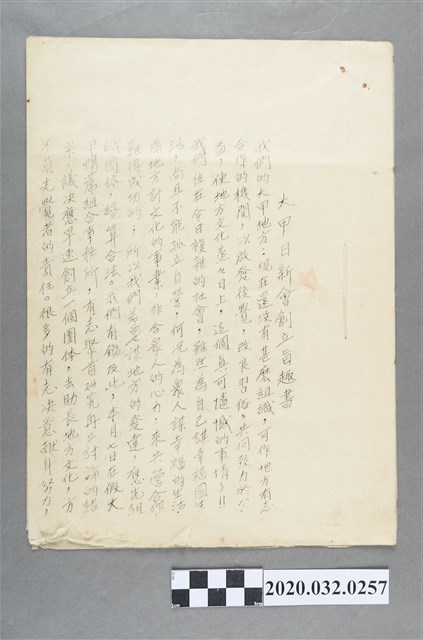 大甲日新會創立旨趣書
我們的大甲地方，現在還沒有甚麼組織，可作地方有志
合作的機關，以啟發後覺，改良習俗，共同致力於公
益，使地方文化蒸々日上，這個真可遺憾的事情了!!
我們住在今日複雜的社會，雖然為自己謀幸福圖生
活，尚且不能孤立自營，何況為眾人謀幸福的生活，
為地方計文化的事業，非合眾人的心力，來共營合作，
難得成功的，所以我們若要謀地方的發達，應先組
織團體，纔算合法。我們有鑑及此，本月七日在假大
甲購 組合事務所，有志聚首研究再三討論的結
果，議決應早速創立一個團体，去助長地方文化，方
不負先覺者的責任。很多的有志決意獻身努力，
2020.032.0257